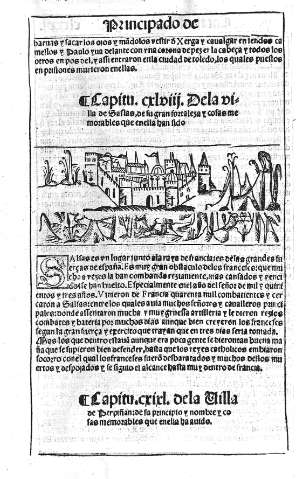 Principado de
baruas y sacar los ojos y mãdolos vestir d̃ Xerga y caualgar en sendos ca
mellos y Paulo yua delante con vna corona de pez en la cabeça y todos los
otros en pos del, y assi entraron en la ciudad de toledo, los quales puestos
en prisiones murieron en ellas.
¶Capitu. cxlviij. De la vi-
lla de Salsas, de su gran fortaleza y cosas me
morables que en ella han sido
SAlsas es vn lugar junto ala raya de francia: es de las grandes fu
erças de españa. Es muy gran obstaculo de los franceses: que mu
chos reyes la han combatido reziamente, mas cansados y venci
dos se han buelto. Especialmente en el año del señor de mil y quini
entos y tres años. Vinieron de Francia quarenta mil combatientes y cer
caron a Salsas: entre los quales auia muchos señores y caualleros prin
cipales: donde assentaron mucha y muy gruessa artilleria y le dieron rezios
combates y bateria por muchos dias aunque bien creyeron los franceses
segun la gran fuerça y exercito que trayan que en tres dias seria tomada.
Mas los que dentro estauã aunque era poca gente se dieron tan buena ma
ña que se supieron bien defender, hasta que los reyes catholicos embiaron
socorro con el qual los franceses fuerõ desbaratados y muchos dellos mu
ertos y despojados y se siguio el alcance hasta muy dentro de francia.
¶Capitu. cxlix. de la Villa
de Perpiñan: de su principio y nombre y co
sas memorables que en ella ha auido.